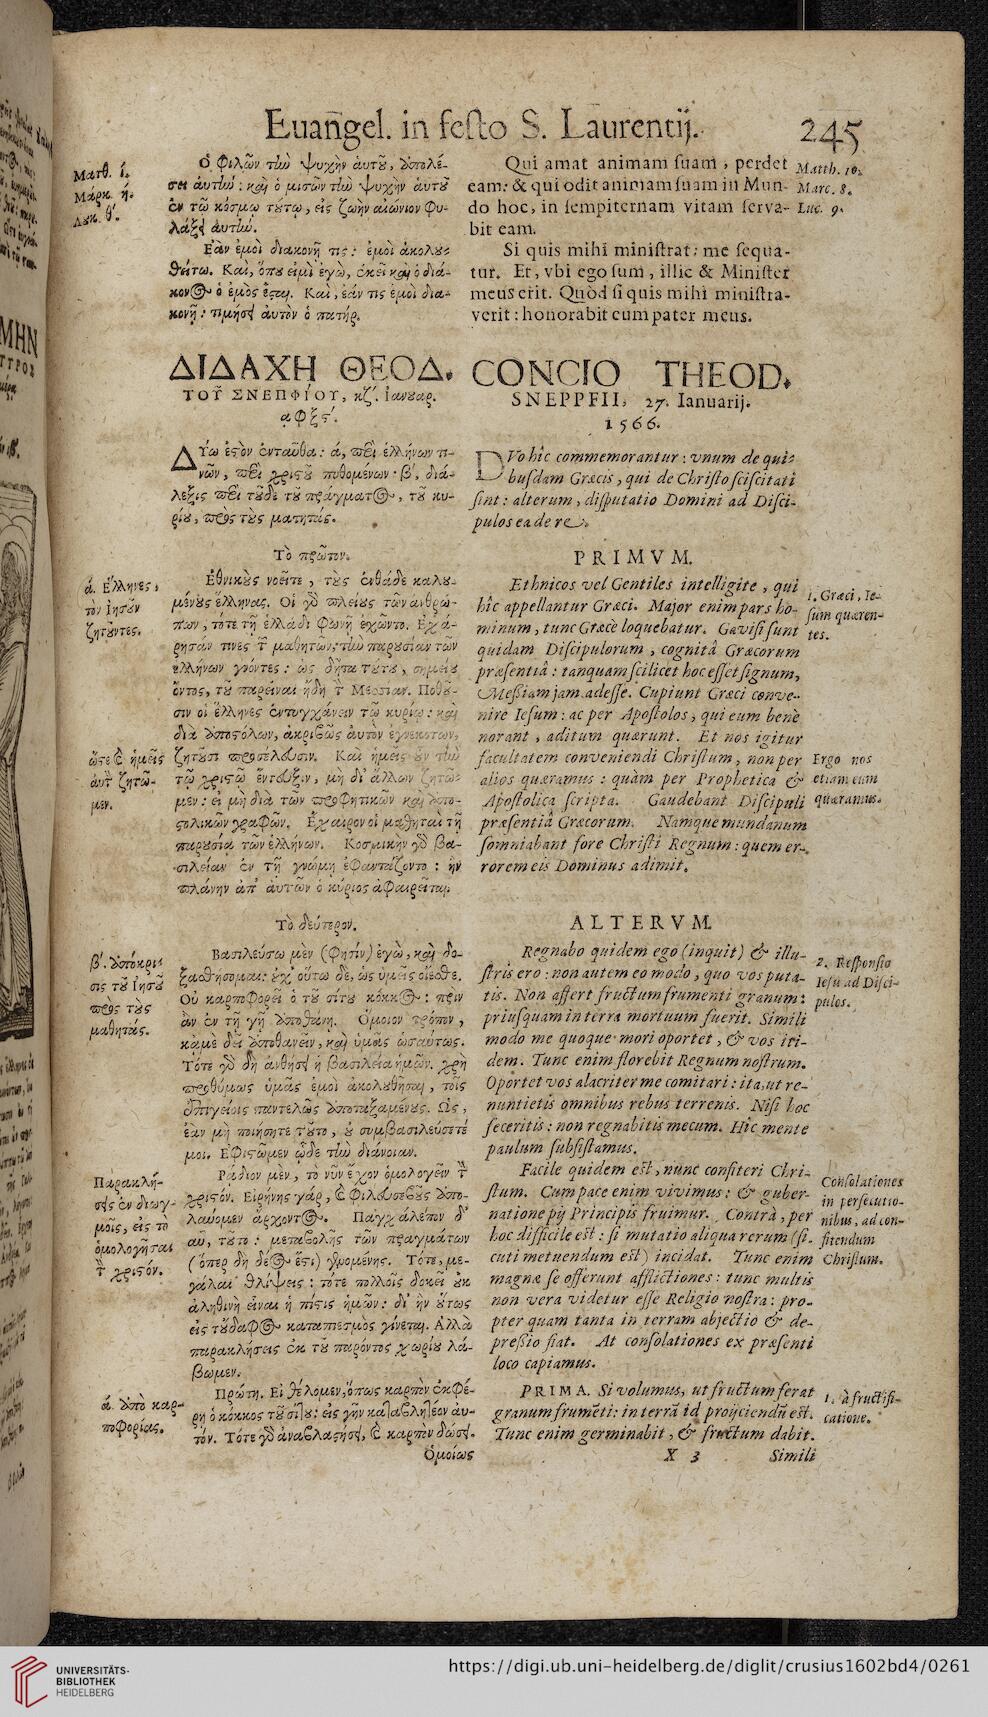 Euangel. in festo S. Laurentij. 245
Ματθ. ί.
Μάρκ. ή.
Λυκ. θ΄.
Ὁ φιλῶν τὴν ψυχὴν ἁυτοῦ, ἀπολέ-
σει ἀυτήν: καὶ ὁ μισῶν τὴν ψυχὴν ἁυτοῦ
ἐν τῷ κόσμῳ τούτῳ, εἰς ζωὴν αἰώνιον φυ-
λάξει ἀυτήν.
Εὰν ἐμοὶ διακονῇ τις: ἐμοὶ ἀκολου-
θείτω. Καὶ, ὅπου εἰμὶ ἐγὼ, ἐκεῖ καὶ ὁ διά-
κονος ὁ ἐμὸς ἔσται. Καὶ, ἐάν τις ἐμοὶ δια-
κονῇ: τιμήσει ἀυτὸν ὁ πατήρ.
Qui amat animam suam, perdet
eam: & qui odit animam suam in Mun-
do hoc, in sempiternam vitam serva-
bit eam.
Si quis mihi ministrat: me sequa-
tur. Et, vbi ego sum, illic & Minister
meus erit. Quòd si quis mihi ministra-
verit: honorabit eum pater meus.
Matth. 10.
Marc. 8.
Luc. 9.
ΔΙΔΑΧΗ ΘΕΟΔ.
ΤΟΥ ΣΝΕΠΦΙΟΥ, κζ΄. Ιανουαρ.
αφξϛ΄.
ΔΥω ἐστὸν ἐνταῦθα: ά, περὶ ἑλλήνων τι-
νῶν, περὶ χριστοῦ πυθομένων· β΄, διά-
λεξις περὶ τοῦδε τοῦ πράγματος, τοῦ κυ-
ρίου, πρὸς τοὺς μαθητάς.
CONCIO THEOD.
SNEPPFII, 27. Ianuarij.
1566.
DVo hîc commemorantur: vnum de qui-
busdam Græcis, qui de Christo sciscitati
sint: alterum, disputatio Domini ad Disci-
pulos ea de re.
Τὸ πρῶτον.
ά. Ελληνες,
τὸν Ἰησοῦν
ζητοῦντες.
Εθνικοὺς νοεῖτε, τοὺς ἐνθάδε καλου-
μένους ἕλληνας. Οἱ γὰρ πλείους τῶν ἀνθρώ-
πων, τότε τῇ ἑλλάδι φωνῇ ἐχρῶντο. Εχά-
ρησάν τινες τῶν μαθητῶν, τὴν παρουσίαν τῶν
ἑλλήνων γνόντες: ὡς δῆτα τούτου, σημείου
ὄντος, τοῦ παρεῖναι ἤδη τὸν Μεσσίαν. Ποθοῦ-
σιν οἱ ἕλληνες ἐντυγχάνειν τῷ κυρίῳ: καὶ
διὰ ἀποστόλων, ἀκριβῶς ἀυτὸν ἐγνωκότων,
ζητοῦσι προσέλευσιν. Καὶ ἡμεῖς οὖν τὴν
τῷ χριστῷ ἔντευξιν, μὴ δι᾽ ἄλλων ζητῶ-
μεν: εἰ μὴ διὰ τῶν προφητικῶν καὶ ἀπο-
στολικῶν γραφῶν. Εχαιρον οἱ μαθηταὶ τῇ
παρουσίᾳ τῶν ἑλλήνων. Κοσμικὴν γὰρ βα-
σιλείαν ἐν τῇ γνώμῃ ἐφαντάζοντο: ἣν
πλάνην ἀπ᾽ ἀυτῶν ὁ κύριος ἀφαιρεῖται.
ὥστε καὶ ἡμεῖς
ἀυτὸν ζητῶ-
μεν.
PRIMVM.
Ethnicos vel Gentiles intelligite, qui
hîc appellantur Græci. Major enim pars ho-
minum, tunc Græcè loquebatur. Gavisi sunt
quidam Discipulorum, cognitâ Græcorum
præsentiâ: tanquam scilicet hoc esset signum,
Messiam jam adesse. Cupiunt Græci conve-
nire Iesum: ac per Apostolos, qui eum benè
norant, aditum quærunt. Et nos igitur
facultatem conveniendi Christum, non per
alios quæramus: quàm per Prophetica &
Apostolica scripta. Gaudebant Discipuli
præsentiâ Græcorum. Namque mundanum
somniabant fore Christi Regnum: quem er-
rorem eis Dominus adimit.
1. Græci, Ie-
sum quæren-
tes.
Ergo nos
etiam eum
quæramus.
Τὸ δεύτερον.
β΄. ἀπόκρι-
σις τοῦ Ἰησοῦ
πρὸς τοὺς
μαθητάς.
Βασιλεύσω μὲν (φησὶν) ἐγὼ, καὶ δο-
ξασθήσομαι: οὐχ οὕτω δὲ, ὡς ὑμεῖς οἴεσθε.
Οὐ καρποφορεῖ ὁ τοῦ σίτου κόκκος: πρὶν
ἂν ἐν τῇ γῇ ἀποθάνῃ. Ομοιον τρόπον,
κᾀμὲ δεῖ ἀποθανεῖν, καὶ ὑμᾶς ὡσαύτως.
Τότε γὰρ δὴ ἀνθήσει ἡ βασιλεία ἡμῶν. χρὴ
προθύμως ὑμᾶς ἐμοὶ ἀκολουθῆσαι, τοῖς
ἐπιγείοις παντελῶς ἀποταξαμένους. Ως,
ἐὰν μὴ ποιήσητε τοῦτο, οὐ συμβασιλεύσετέ
μοι. Εφιστῶμεν ὧδε τὴν διάνοιαν.
Ρᾴδιον μὲν, τὸ νῦν ἔχον ὁμολογεῖν τὸν
χριστόν. Εἰρήνης γάρ, καὶ φιλευσεβοῦς ἀπο-
λαύομεν ἄρχοντος. Παγχάλεπον δ᾽
αὖ, τοῦτο: μεταβολῆς τῶν πραγμάτων
(ὅπερ δὴ δέος ἐστὶ) γενομένης. Τότε, με-
γάλαι θλίψεις: τότε πολλοῖς δοκεῖ οὐκ
ἀληθινὴ εἶναι ἡ πίστις ἡμῶν: δι᾽ ἣν οὕτως
εἰς τοὔδαφος καταπιεσμὸς γίνεται. Αλλὰ
παρακλήσεις ἐκ τοῦ παρόντος χωρίου λά-
βωμεν.
Παρακλή-
σεις ἐν διωγ-
μοῖς, εἰς τὸ
ὁμολογῆσαι
τὸν χριστόν.
ά. ἀπὸ καρ-
ποφορίας.
Πρώτη. Εἰ θέλομεν, ὅπως καρπὸν ἐκφέ-
ρῃ ὁ κόκκος τοῦ σίτου: εἰς γῆν καταβλητέον ἀυ-
τόν. Τότε γὰρ ἀναβλαστήσει, καὶ καρπὸν δώσει.
Ὁμοίως
ALTERVM.
Regnabo quidem ego (inquit) & illu-
stris ero: non autem eo modo, quo vos puta-
tis. Non affert fructum frumenti granum:
priusquam in terra mortuum fuerit. Simili
modo me quoque mori oportet, & vos iti-
dem. Tunc enim florebit Regnum nostrum.
Oportet vos alacriter me comitari: ita, ut re-
nuntietis omnibus rebus terrenis. Nisi hoc
feceritis: non regnabitis mecum. Hîc mente
paulum subsistamus.
Facile quidem est, nunc confiteri Chri-
stum. Cum pace enim vivimus: & guber-
natione pij Principis fruimur. Contrà, per
hoc difficile est: si mutatio aliqua rerum (si-
cuti metuendum est) incidat. Tunc enim
magnæ se offerunt afflictiones: tunc multis
non vera videtur esse Religio nostra: pro-
pter quam tanta in terram abjectio & de-
pressio fiat. At consolationes ex præsenti
loco capiamus.
PRIMA. Si volumus, ut fructum ferat
granum frumēti: in terrā id proijciendū est.
Tunc enim germinabit, & fructum dabit.
X 3 Simili
2. Responsio
Iesu ad Disci-
pulos.
Consolationes
in persecutio-
nibus, ad con-
fitendum
Christum.
1. à fructifi-
catione.
UNIVERSITÄTS-
BIBLIOTHEK
HEIDELBERG
https://digi.ub.uni-heidelberg.de/diglit/crusius1602bd4/0261